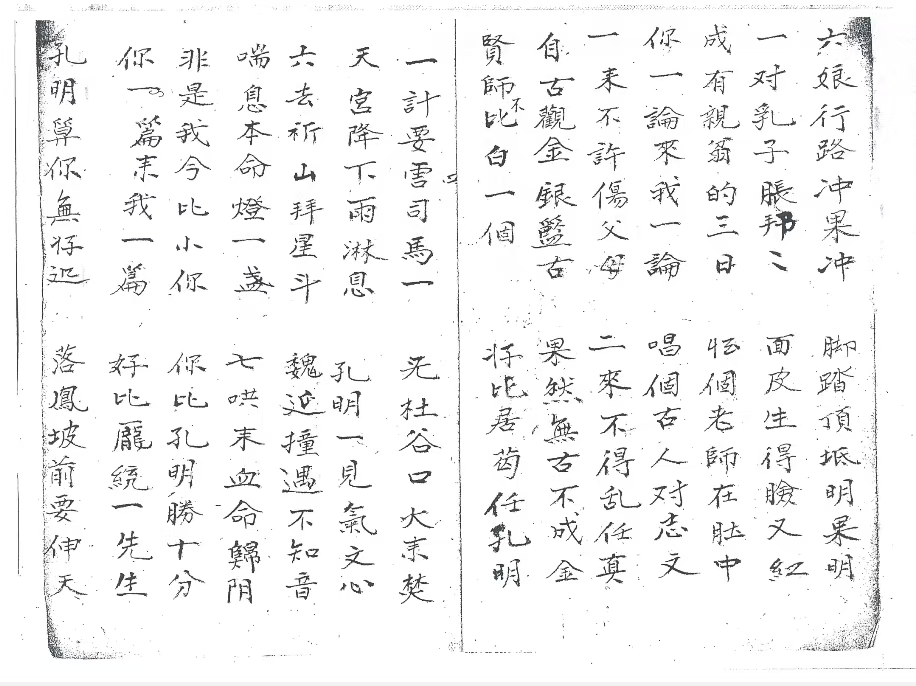 六娘行路冲果冲 脚踏頂坻明果明
一对乳子脹邦〻 面皮生得臉又紅
成有親翁的三日 个個老師在肚中
你一論來我一論 唱個古人对志文
一来不許傷父母 二來不得乱任真
自古觀金銀盬古 果然無古不成金
賢師不比白一個 将比居苟任孔明
一計要雲司馬一 旡杜谷口大耒焚
天宮降下雨淋息 孔明一見氣文心
六去祈山拜星斗 魏延撞遇不知音
喘息本命燈一盏 七哄耒血命歸阴
非是我今比小你 你比孔明勝十分
你一篇耒我一篇 好比龐統一先生
孔明算你無将迟 落鳳坡前要伸天